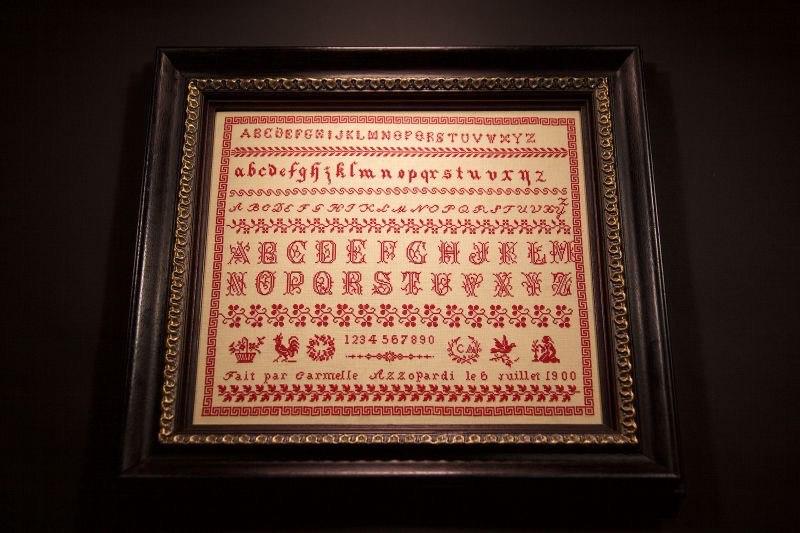 ABCDEFGHIJKLMNOPQRSTUVWXYZ
abcdefghzklmnopqrstuvxyz
ABCDEFGHIKLMNOPQRSTUVXYZ
ABCDEFGHJKLM
NOPQRSTUVXYZ
1234567890
CA
Fait par Carmelle Azzopardi le 6 juillet 1900